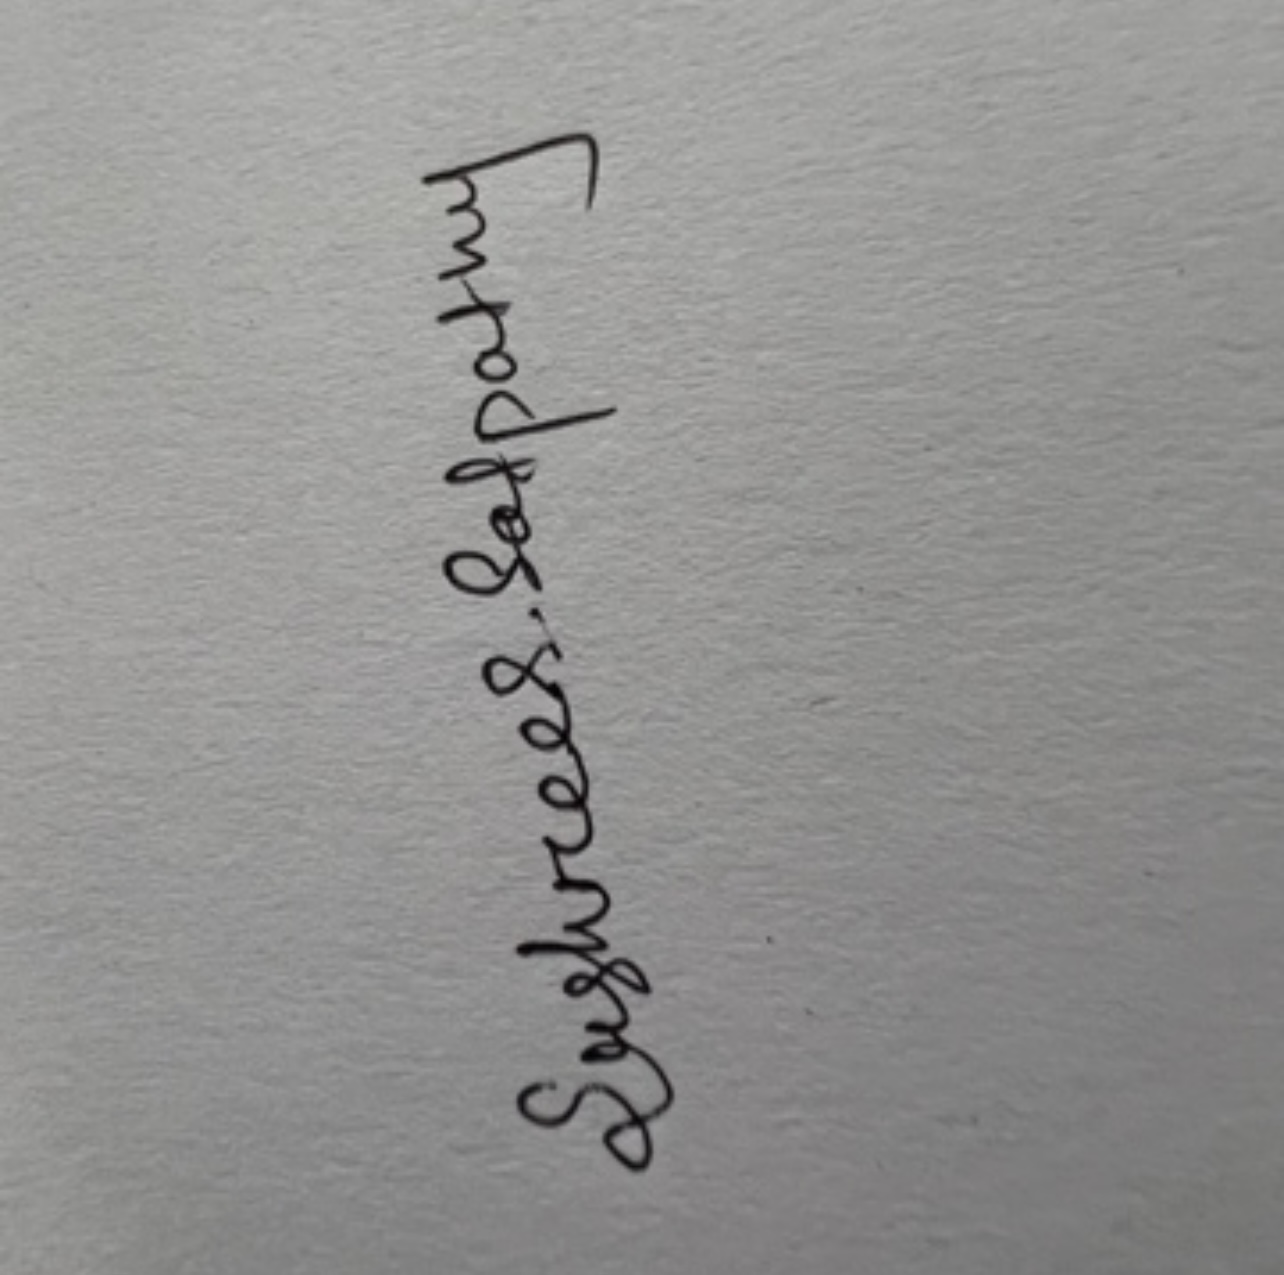 Sushrees. Satpathy